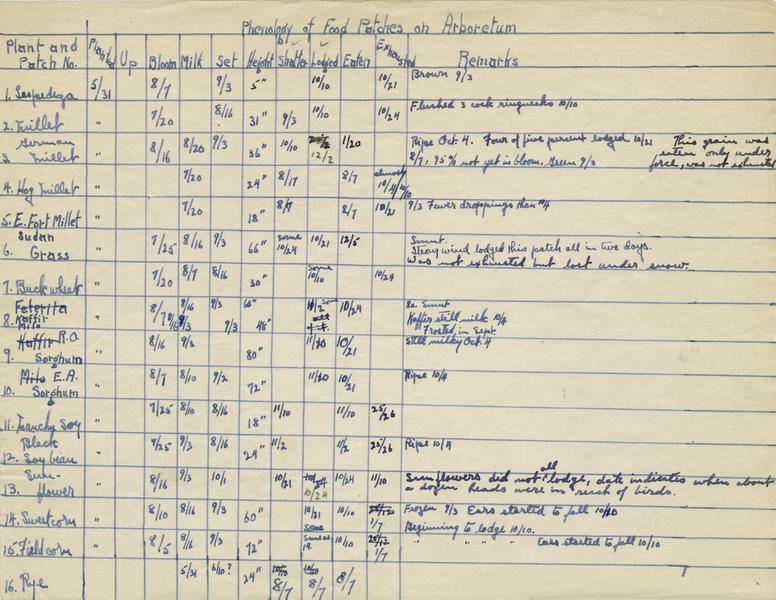 Phenology of Food Patches on Arboretum
Plant and Patch No. Planted Up Bloom Milk Set Height Shatter Lodged Eaten Exhausted Remarks
1. Lespedeza 5/31 8/7 9/3 5" 10/10 10/21 Brown 9/3
2. Millet " 7/20 8/16 31" 9/3 10/10 10/24 Flushed 3 cock ringnecks 10/10
3. German Millet " 8/16 8/20 9/3 36" 10/10 12/2 1/20 Ripe Oct. 4. Four of five percent lodged 10/21 This grain was
8/7, 95% not yet in bloom. Green 9/3 eaten only under
force, was not exhausted
4. Hog Millet " 7/20 24" 8/17 8/7 almost 10/4 10/10
5. E. Fort Millet " 7/20 18" 8/7 8/7 10/21 9/3 Fewer droppings than #4
6. Sudan Grass " 7/25 8/16 9/3 66" some 10/24 10/21 12/5 Smut.
Strong wind lodged this patch all in two days.
Was not exhausted but lost under snow.
7. Buckwheat " 7/20 8/7 8/16 30" Some 10/10 10/24
8. Feterita Kaffir Milo " 8/7 8/16 9/3 9/3 60" 48" some 10/24 8a. Smut
Kaffir still milk 10/4
Frosted in Sept.
9. Kaffir R.O. Sorghum " 8/16 9/3 80" 11/10 10/21 Still milky Oct. 4
10. Milo E.A. Sorghum " 8/7 8/10 9/2 72" 11/10 10/21 Ripe 10/4
11. Manchy Soy " 7/25 8/10 8/16 18" 11/10 11/10 25/26
12. Black Soybean " 7/25 9/3 8/16 24" 11/2 11/2 25/26 Ripe 10/4
13. Sunflower " 8/16 9/3 10/1 10/21 10/24 10/24 11/10 Sunflowers did not all lodge, date indicates when about
a dozen heads were in reach of birds.
14. Sweetcorn " 8/10 8/16 9/3 60" 10/21 10/10 1/7 Frozen 9/3 Ears started to fall 10/10
15. Fieldcorn " 8/5 8/16 9/3 72" some Same as 14. 10/10 1/7 Beginning to lodge 10/10.
" " " " Ears started to fall 10/10
16. Rye 5/31 6/10? 24" 10/10 8/7 10/10 8/7 8/7